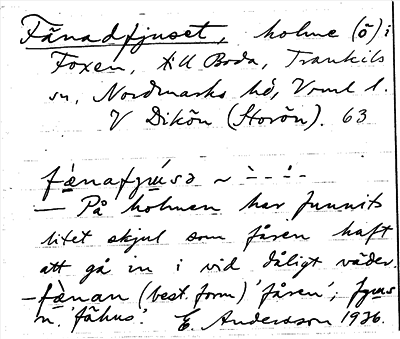 Fänadfjuset, holme (ö) i
Foxen, till Boda, Trankils
sn, Nordmarks hd, Vrml l.
V Dikön (Storön). 63
fæ̀nafjʉ́sə ~ ὶ--ί-
— På holmen har funnits
litet skjul som fåren haft
att gå in i vid dåligt väder.
– fæ̀nan (best. form) 'fåren'; fjʉs
n. 'fähus'. E. Andersson 1936.